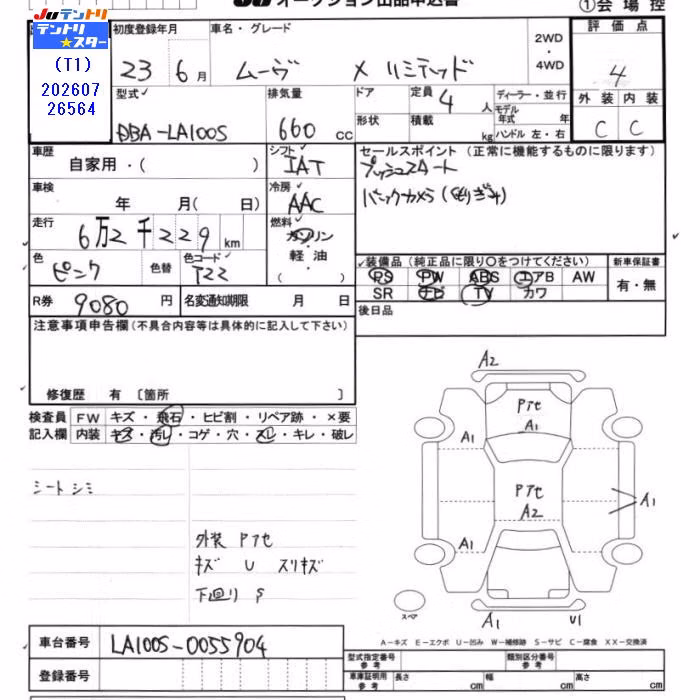 JU オークション出品申込書
①会場控
JUテントリ
テントリ★スター
(T1)
202607
26564
初度登録年月
23 6月
車名・グレード
ムーヴ X リミテッド
2WD
・
4WD
評価点
4
外装 内装
C C
型式
DBA-LA100S
排気量
660 cc
ドア
形状
定員 4 人
積載 kg
ディーラー・並行
モデル年式 年
ハンドル 左・右
車歴
自家用・( )
シフト
IAT
セールスポイント (正常に機能するものに限ります)
プッシュスタート
バックカメラ
車検
年 月( 日)
冷房
AAC
走行
6万2千229km
燃料
ガソリン
軽油
( )
色
ピンク
色替
色コード
T22
装備品(純正品に限り○をつけてください)
PS PW ABS エアB AW
SR ナビ TV カワ
新車保証書
有・無
R券
9080円
名変通知期限 月 日
後日品
注意事項申告欄(不具合内容等は具体的に記入して下さい)
修復歴 有 〔箇所 〕
検査員
記入欄
FW キズ・飛石・ヒビ割・リペア跡・×要
内装 キズ・汚レ・コゲ・穴・スレ・キレ・破レ
シートシミ
外装 Pアセ
キズ U スリキズ
下廻り S
A2
Pアセ
A1
A1
Pアセ
A2
A1
A1
スペア
A1
U1
A-キズ E-エクボ U-凹み W-補修跡 S-サビ C-腐食 XX-交換済
車台番号
LA100S-0055904
登録番号
型式指定番号
参考
類別区分番号
参考
車庫証明用
参考
長さ cm 幅 cm 高さ cm